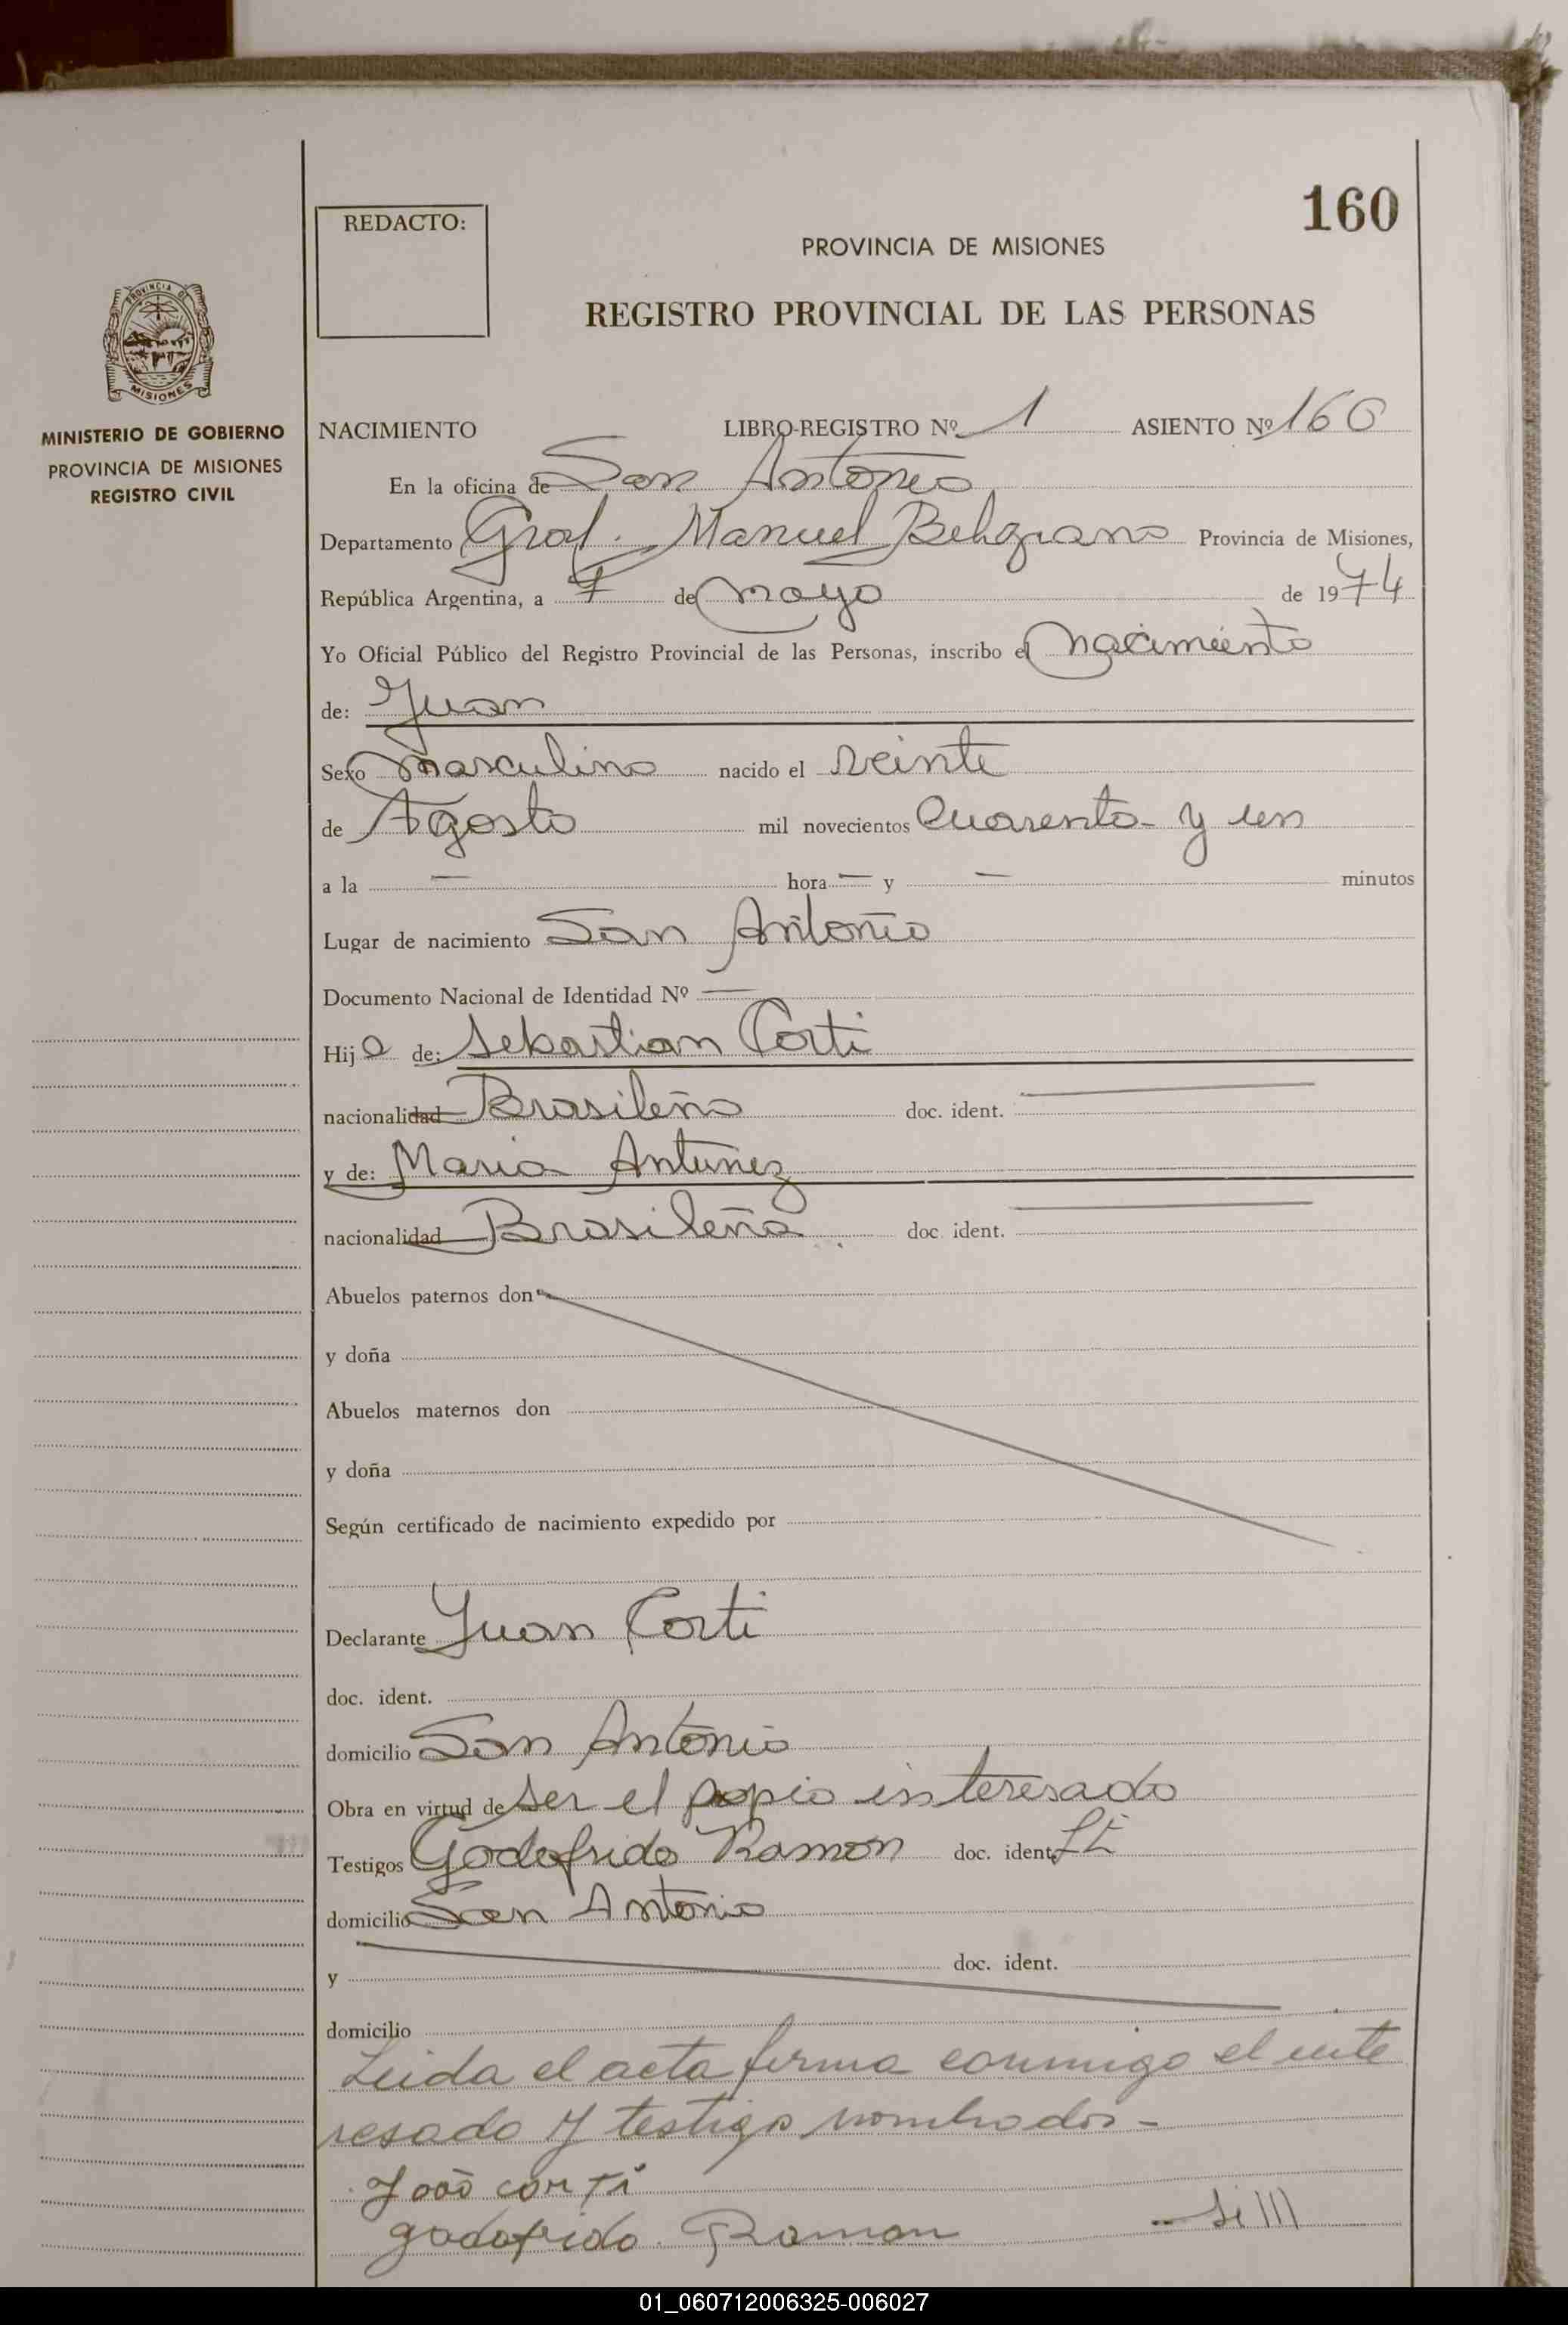 160
REDACTO:
PROVINCIA DE MISIONES
REGISTRO PROVINCIAL DE LAS PERSONAS
PROVINCIA DE
MISIONES
MINISTERIO DE GOBIERNO
PROVINCIA DE MISIONES
REGISTRO CIVIL
NACIMIENTO LIBRO-REGISTRO Nº 1 ASIENTO Nº 160
En la oficina de San Antonio
Departamento Gral. Manuel Belgrano Provincia de Misiones,
República Argentina, a 7 de mayo de 1974
Yo Oficial Público del Registro Provincial de las Personas, inscribo el nacimiento
de: Juan
Sexo masculino nacido el veinte
de Agosto mil novecientos cuarenta y un
a la — hora — y — minutos
Lugar de nacimiento San Antonio
Documento Nacional de Identidad Nº —
Hijo de: Sebastian Corti
nacionalidad Brasileño doc. ident.
y de: Maria Antunez
nacionalidad Brasileña doc. ident.
Abuelos paternos don
y doña
Abuelos maternos don
y doña
Según certificado de nacimiento expedido por
Declarante Juan Corti
doc. ident.
domicilio San Antonio
Obra en virtud de ser el propio interesado
Testigos Godofrido Ramon doc. ident. LE
domicilio San Antonio
y doc. ident.
domicilio
Leida el acta firma conmigo el inte
resado y testigo nombrados -
João corti
godofrido Ramon
01_060712006325-006027